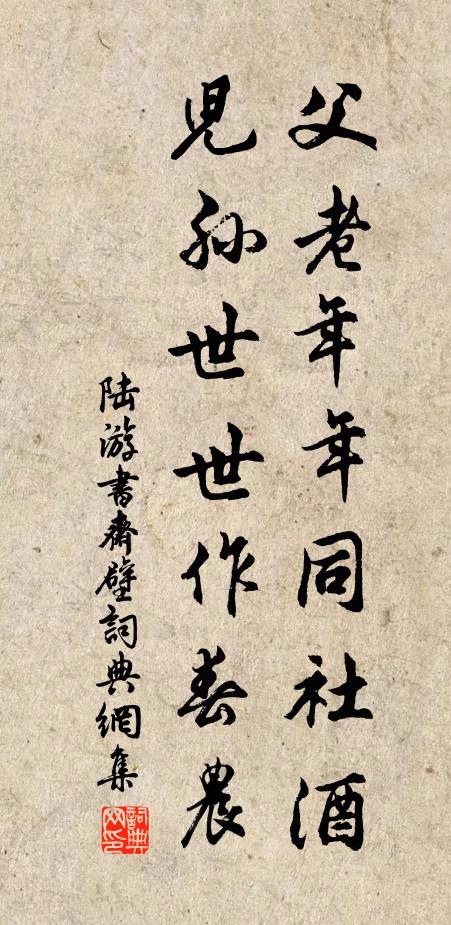 父老年年同社酒
兒孫世世作春農
陆游書齋壁詞典網集
詞典网印